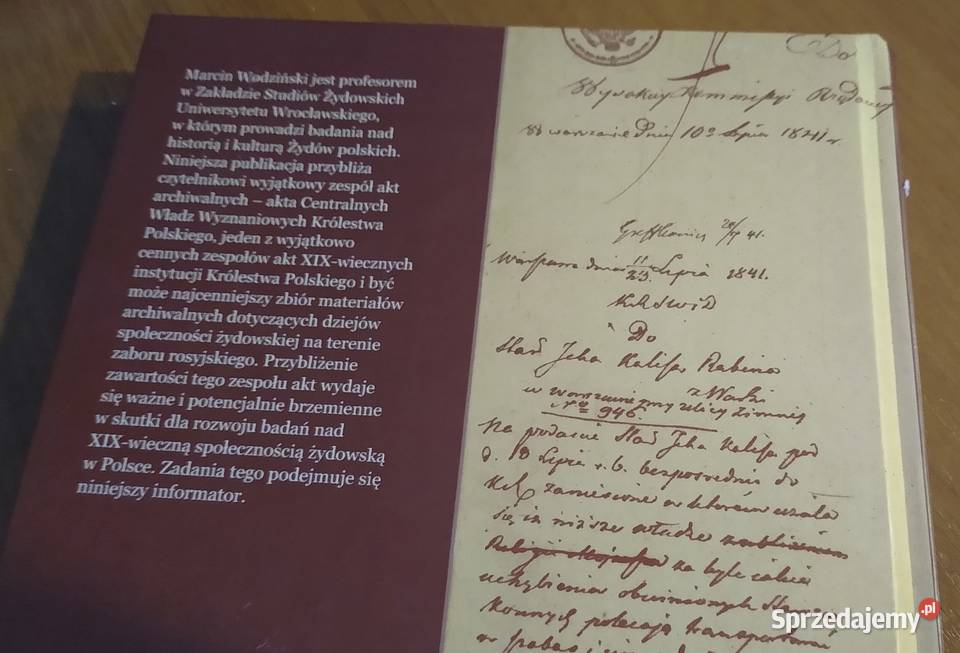 Marcin Wodziński jest profesorem
w Zakładzie Studiów Żydowskich
Uniwersytetu Wrocławskiego,
w którym prowadzi badania nad
historią i kulturą Żydów polskich.
Niniejsza publikacja przybliża
czytelnikowi wyjątkowy zespół akt
archiwalnych – akta Centralnych
Władz Wyznaniowych Królestwa
Polskiego, jeden z wyjątkowo
cennych zespołów akt XIX-wiecznych
instytucji Królestwa Polskiego i być
może najcenniejszy zbiór materiałów
archiwalnych dotyczących dziejów
społeczności żydowskiej na terenie
zaboru rosyjskiego. Przybliżenie
zawartości tego zespołu akt wydaje
się ważne i potencjalnie brzemienne
w skutki dla rozwoju badań nad
XIX-wieczną społecznością żydowską
w Polsce. Zadania tego podejmuje się
niniejszy informator.
Do
Wysokiey Kommissyi Rządowey
w Warszawie Dnia 10 Lipca 1841 r.
Warszawa dnia 11/23 Lipca 1841.
Do
Rabina
z Warki
w Warszawie przy ulicy Zimney
No 946.
Na podanie
d. 10 Lipca r. b. bezpośrednio do
zaniesione w którem
się iż niższe władze
na byłe
uchybienia obwinionych
konnych polecają transportować
Sprzedajemy.pl